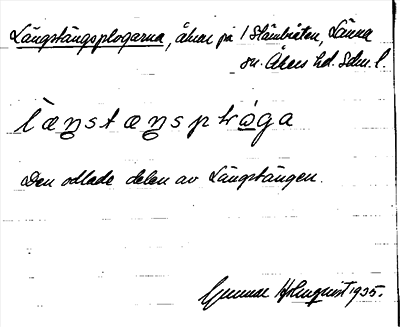 Långstångsplogarna, åkrar på 1 Stämbråten, Länna
sn. Åkers hd. Sdm. l.
læŋstæŋsplòga
Den odlade delen av Långstången.
Gunnar Holmquist 1935.